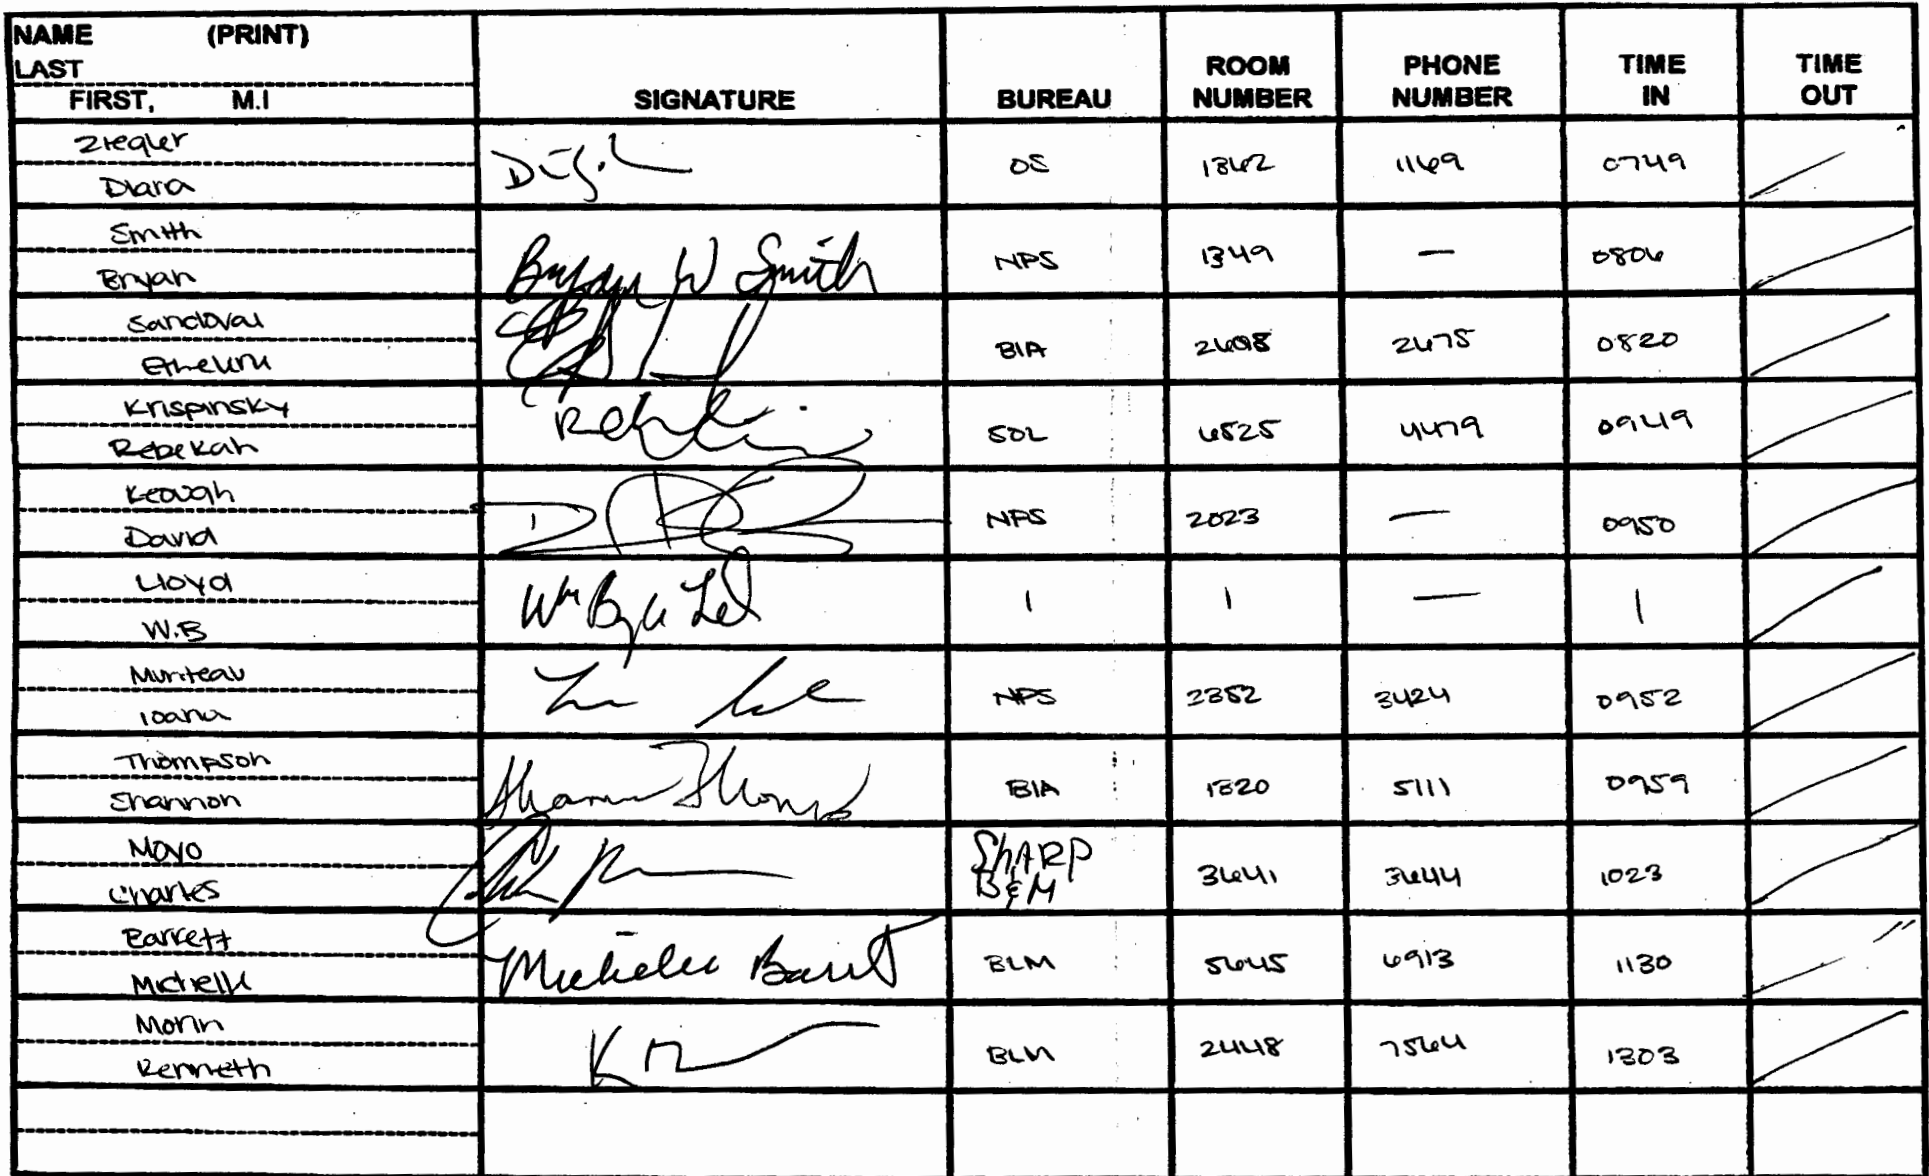 NAME (PRINT)
LAST
FIRST, M.I
SIGNATURE
BUREAU
ROOM NUMBER
PHONE NUMBER
TIME IN
TIME OUT
Ziegler
Diara
OS 1362 1169 0749
Smith
Bryan
Bryan W Smith
NPS 1349 — 0806
Sandoval
BIA 2675 0820
Krispinsky
Rebekah
SOL 6525 4479 0949
Keough
David
NPS 2023 — 0950
Lloyd
W.B
| | — |
Ioana
NPS 2352 3424 0952
Thompson
Shannon
Shannon Thomp
BIA 1320 5111 0959
Mayo
Charles
ShARP
B&M
3641 3644 1023
Barrett
Michelle
Michelle Barrett
BLM 5645 6913 1130
Morin
Kenneth
BLM 2448 7564 1303